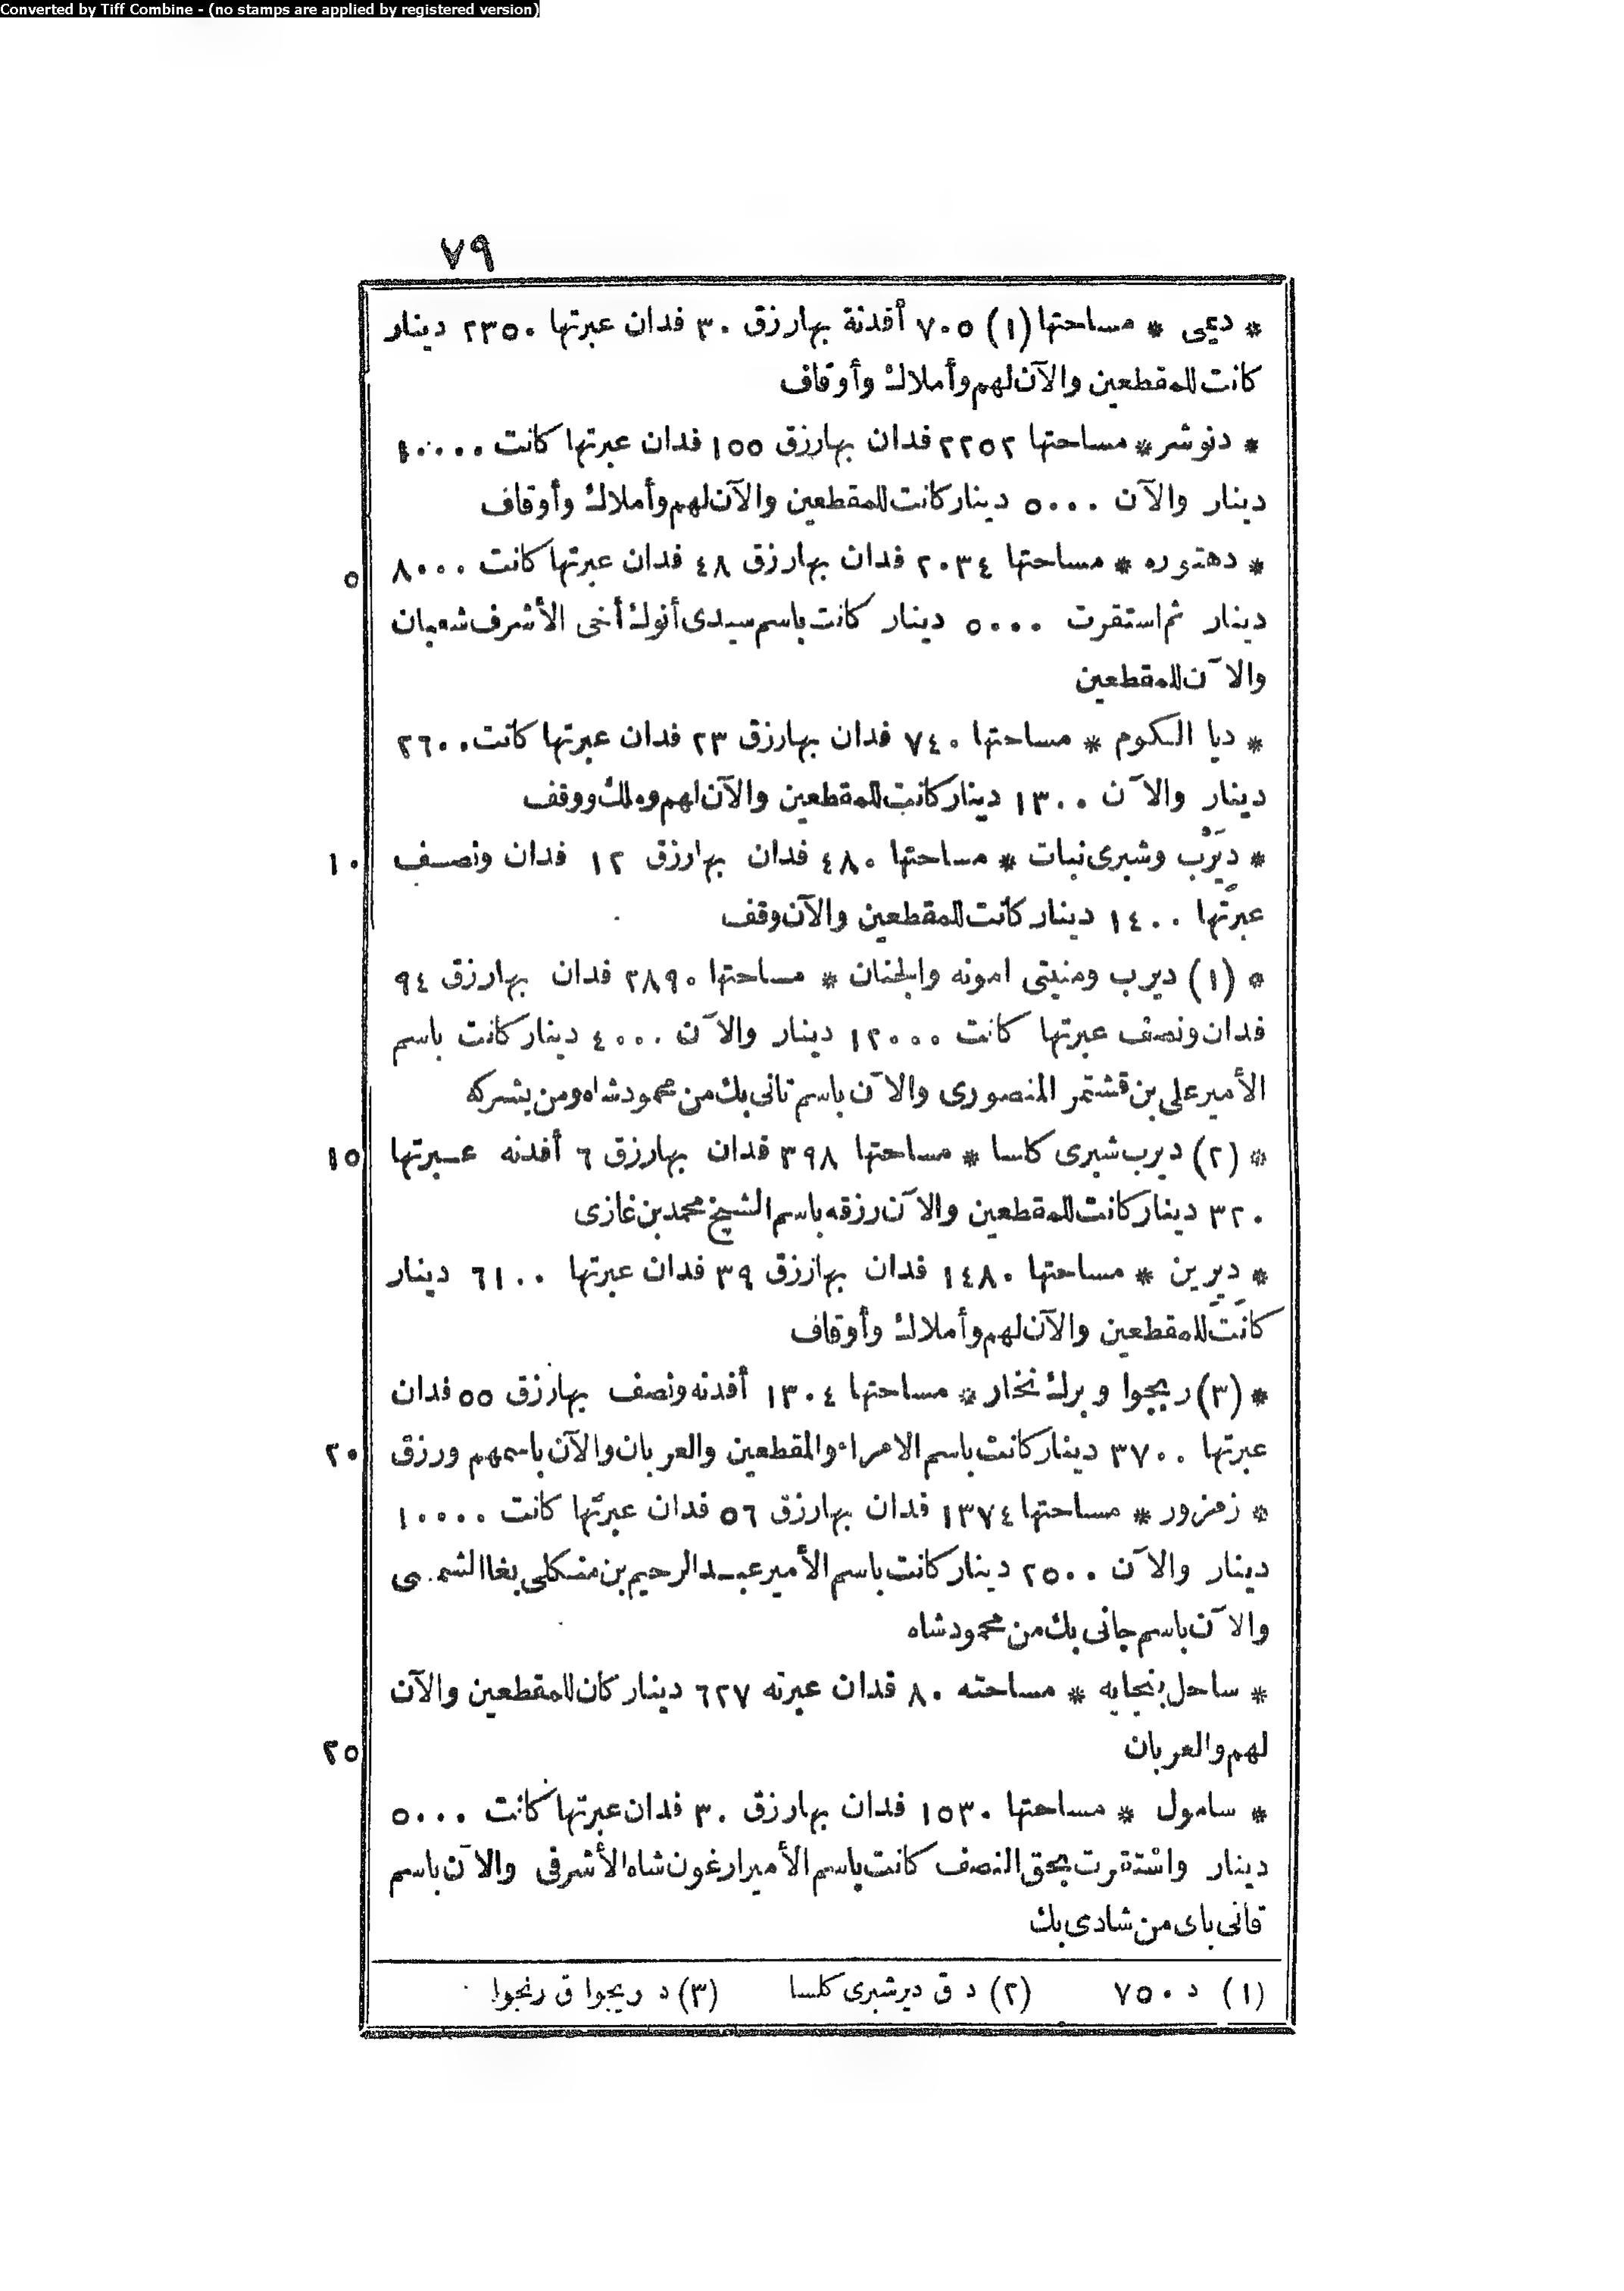 Converted by Tiff Combine - (no stamps are applied by registered version)
٧٩
* دمى * مساحتها (١) ٧٠٥ أفدنة بها رزق ٣٠ فدان عبرتها ٢٣٥٠ دينار
كانت للمقطعين والآن لهم وأملاك وأوقاف
* دنوشر * مساحتها ٢٢٥٢ فدان بها رزق ١٥٥ فدان عبرتها كانت ١٠٠٠٠
دينار والآن ٥٠٠٠ دينار كانت للمقطعين والآن لهم وأملاك وأوقاف
* دهتوره * مساحتها ٢٠٣٤ فدان بها رزق ٤٨ فدان عبرتها كانت ٨٠٠٠
٥
دينار ثم استقرت ٥٠٠٠ دينار كانت باسم سيدى أنوك أخى الأشرف شعبان
والآن للمقطعين
* ديا الكوم * مساحتها ٧٤٠ فدان بها رزق ٢٣ فدان عبرتها كانت ٢٦٠٠
دينار والآن ١٣٠٠ دينار كانت للمقطعين والآن لهم وملك ووقف
* ديرب وشبرى نبات * مساحتها ٤٨٠ فدان بها رزق ١٢ فدان ونصف
١٠
عبرتها ١٤٠٠ دينار كانت للمقطعين والآن وقف
* (١) ديرب ومنيتى امونه والجنان * مساحتها ٢٨٩٠ فدان بها رزق ٩٤
فدان ونصف عبرتها كانت ١٢٠٠٠ دينار والآن ٤٠٠٠ دينار كانت باسم
الأمير على بن قشتمر المنصورى والآن باسم تانى بك من محمود شاه ومن يشركه
* (٢) ديرب شبرى كاسا * مساحتها ٣٩٨ فدان بها رزق ٦ أفدنه عبرتها
١٥
٣٢٠ دينار كانت للمقطعين والآن رزقه باسم الشيخ محمد بن غازى
* ديرين * مساحتها ١٤٨٠ فدان بها رزق ٣٩ فدان عبرتها ٦١٠٠ دينار
كانت للمقطعين والآن لهم وأملاك وأوقاف
* (٣) ريجوا وبرك نخار * مساحتها ١٣٠٤ أفدنه ونصف بها رزق ٥٥ فدان
عبرتها ٣٧٠٠ دينار كانت باسم الامراء والمقطعين والعربان والآن باسمهم ورزق
٢٠
* زمزور * مساحتها ١٣٧٤ فدان بها رزق ٥٦ فدان عبرتها كانت ١٠٠٠٠
دينار والآن ٢٥٠٠ دينار كانت باسم الأمير عبد الرحيم بن منكلى بغا الشمسى
والآن باسم جانى بك من محمود شاه
* ساحل بنجايه * مساحته ٨٠ فدان عبرته ٦٢٧ دينار كان للمقطعين والآن
لهم والعربان
٢٥
* سامول * مساحتها ١٥٣٠ فدان بها رزق ٣٠ فدان عبرتها كانت ٥٠٠٠
دينار واستقرت بحق النصف كانت باسم الأمير ارغون شاه الأشرفى والآن باسم
قانى باى من شادى بك
(١) د ٧٥٠ (٢) د ق دير شبرى كلسا (٣) د ريجوا ق رنجوا